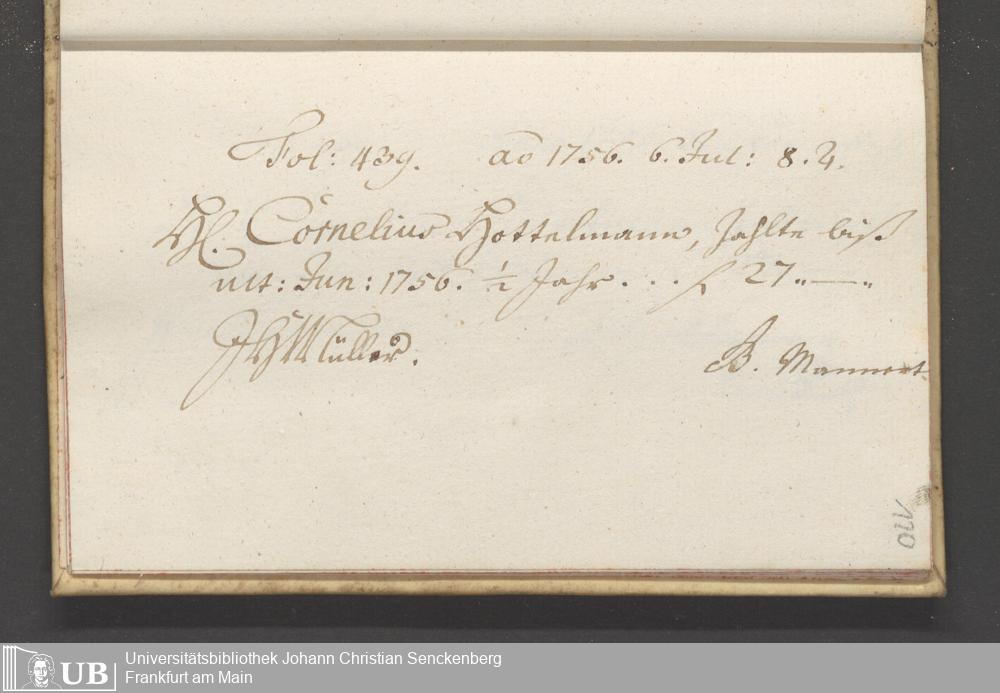 Fol: 439. ao 1756. 6. Jul: 8. 2.
H. Cornelius Hottelmann, Zahlte biß
ult: Jun: 1756. ½ Jahr . . . f 27 „ — „
JHMüller. B. Mannert
170
UB
Universitätsbibliothek Johann Christian Senckenberg
Frankfurt am Main